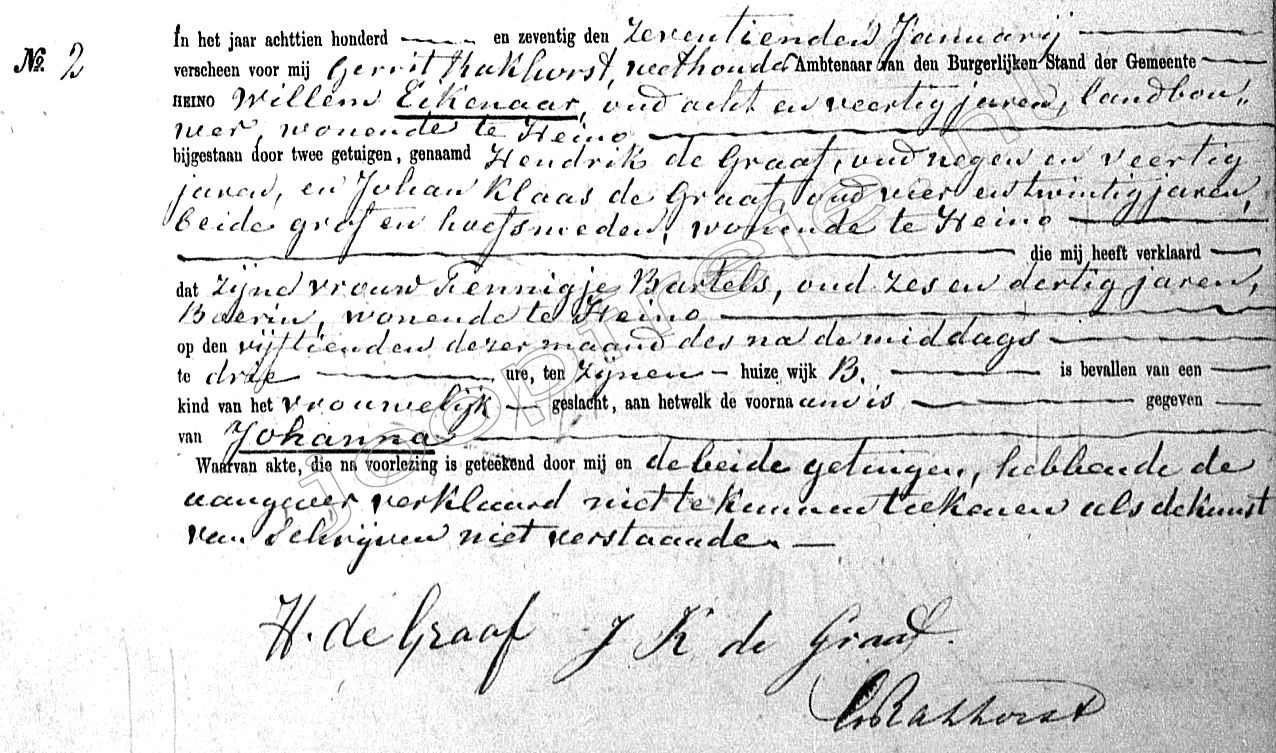 No. 2
In het jaar achttien honderd en zeventig den zeventienden Januarij
verscheen voor mij Gerrit Rakhorst, wethouder Ambtenaar van den Burgerlijken Stand der Gemeente
HEINO Willem Eikenaar, oud acht en veertig jaren, landbou„
wer, wonende te Heino
bijgestaan door twee getuigen, genaamd Hendrik de Graaf, oud negen en veertig
jaren, en Johan Klaas de Graaf, oud vier en twintig jaren,
beide grof en hoefsmeden, wonende te Heino
die mij heeft verklaard
dat zijne vrouw Tennigje Bartels, oud zes en dertig jaren,
Boerin, wonende te Heino
op den vijftienden dezer maand des na de middags
te drie ure, ten zijnen huize wijk B. is bevallen van een
kind van het vrouwelijk geslacht, aan hetwelk de voornaam is gegeven
van Johanna
Waarvan akte, die na voorlezing is geteekend door mij en de beide getuigen, hebbende de
aangever verklaard niet te kunnen teekenen als de kunst
van schrijven niet verstaande.
H. de Graaf J K de Graaf.
GRakhorst